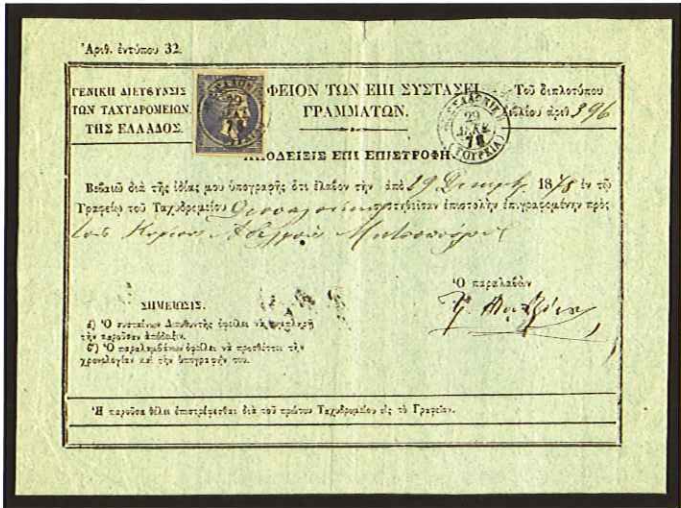 Ἀριθ. ἐντύπου 32.
ΓΕΝΙΚΗ ΔΙΕΥΘΥΝΣΙΣ
ΤΩΝ ΤΑΧΥΔΡΟΜΕΙΩΝ
ΤΗΣ ΕΛΛΑΔΟΣ.
ΦΕΙΟΝ ΤΩΝ ΕΠΙ ΣΥΣΤΑΣΕΙ
ΓΡΑΜΜΑΤΩΝ.
Τοῦ διπλοτύπου
βιβλίου ἀριθ. 396
29
78
ΘΕΣΣΑΛΟΝΙΚΗ
29
ΔΕΚΕ.
78
(ΤΟΥΡΚΙΑ)
ΑΠΟΔΕΙΞΙΣ ΕΠΙ ΕΠΙΣΤΡΟΦΗ
Βεβαιῶ διὰ τῆς ἰδίας μου ὑπογραφῆς ὅτι ἔλαβον τὴν ἀπὸ 29 Δεκεμβρ. 1878 ἐν τῷ
Γραφείῳ τοῦ Ταχυδρομείου Θεσσαλονίκης συστηθεῖσαν ἐπιστολὴν ἐπιγραφομένην πρὸς
τοὺς Κυρίους Ἀδελφοὺς
Ὁ παραλαβὼν
ΣΗΜΕΙΩΣΙΣ.
ά) Ὁ συσταίνων Διευθυντὴς ὀφείλει νὰ συμπληρῇ
τὴν παροῦσαν ἀπόδειξιν.
β΄) Ὁ παραλαμβάνων ὀφείλει νὰ προσθέττει τὴν
χρονολογίαν καὶ τὴν ὑπογραφήν του.
Ἡ παροῦσα θέλει ἐπιστρέφεσθαι διὰ τοῦ πρώτου Ταχυδρομείου εἰς τὸ Γραφεῖον.